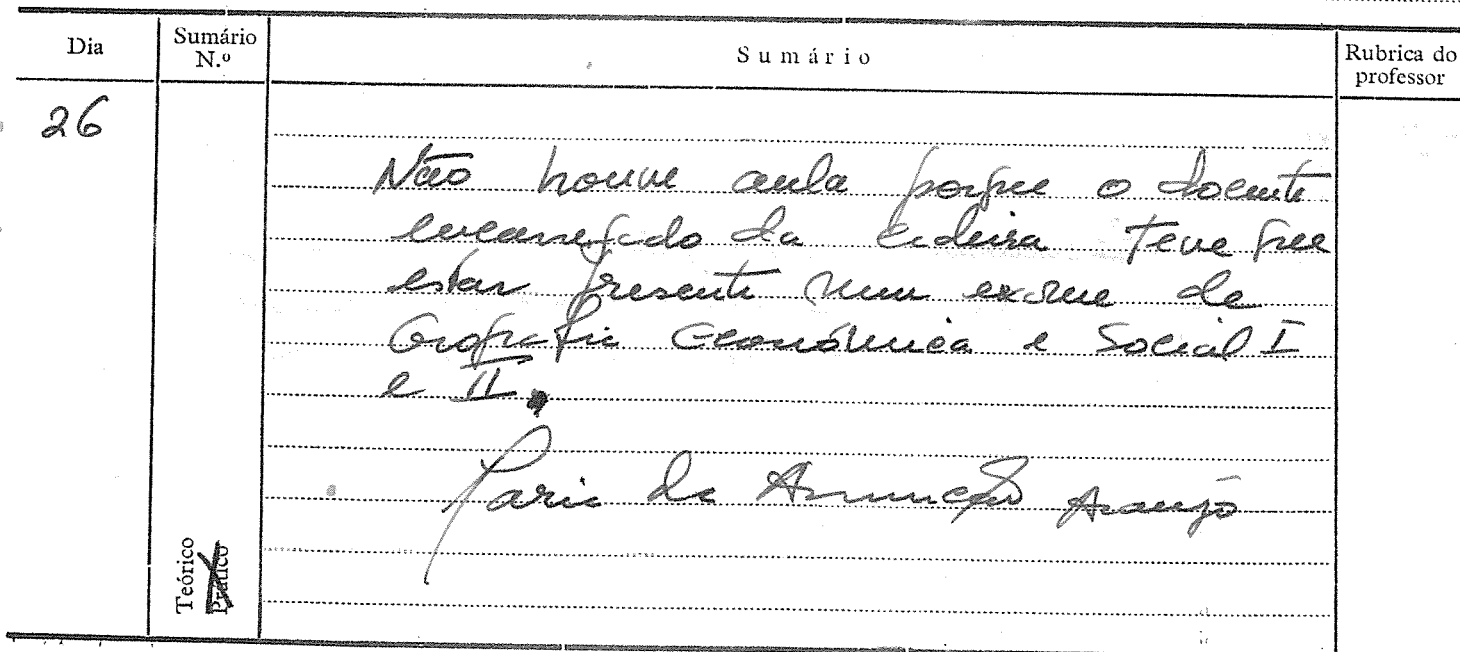 Dia
Sumário N.º
Sumário
Rubrica do professor
26
Não houve aula porque o docente
encarregado da cadeira teve que
estar presente num exame de
Geografia Económica e Social I
e II.
Maria da Anunciação Araújo
Teórico
Prático